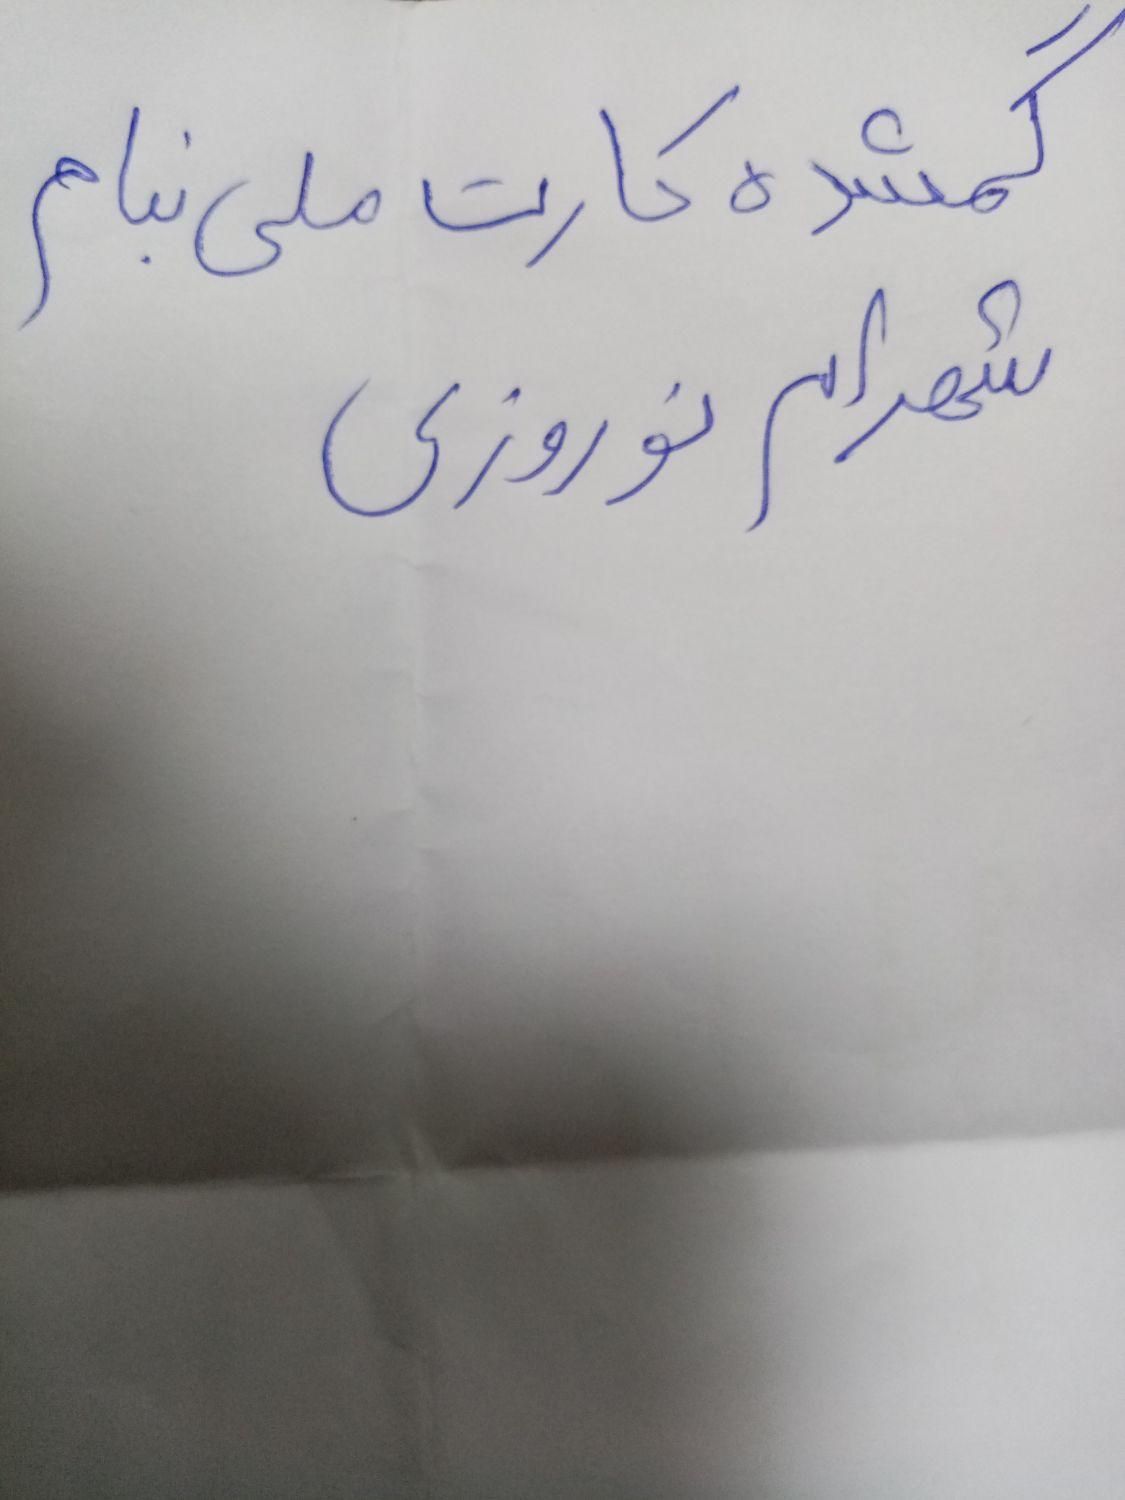 گمشده کارت ملی بنام
شهرام نوروزی